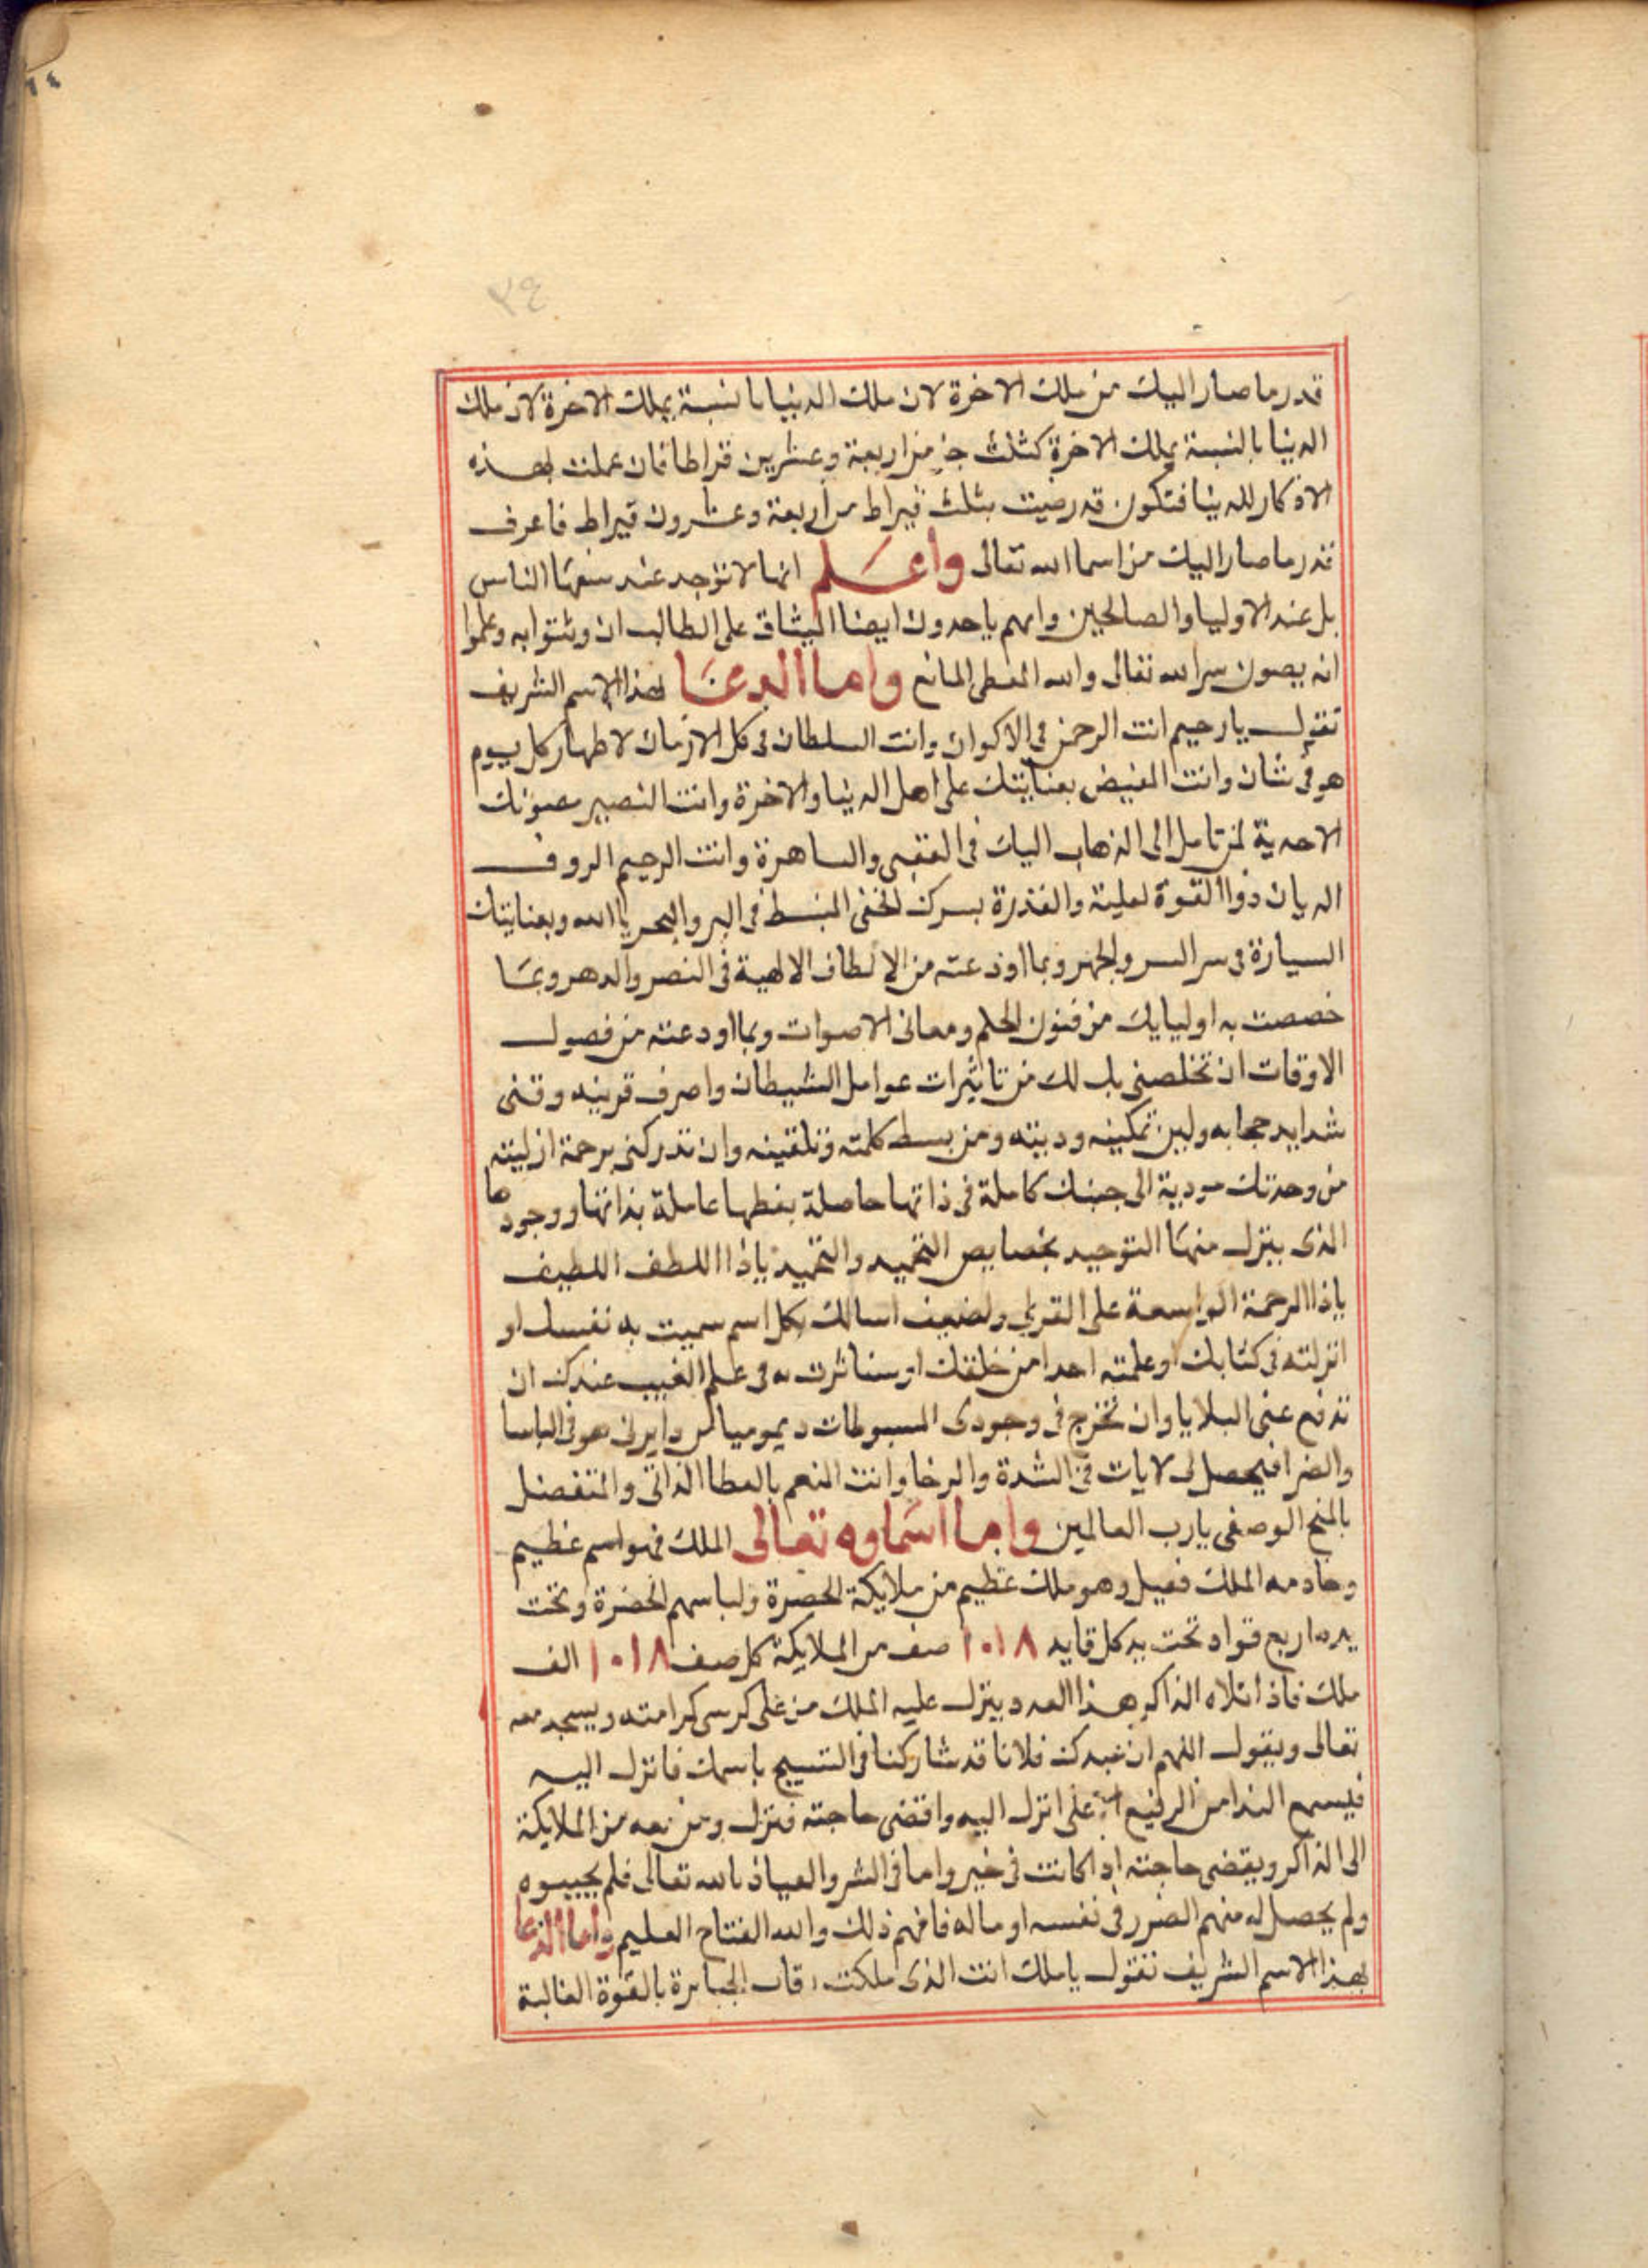 ١٤
٣٤
قدر ما صار اليك من ملك الاخرة لان ملك الدنيا بالنسبة بملك الاخرة لان ملك
الدنيا بالنسبة بملك الاخرة كثلث جز من اربعة وعشرين قراطا فان عملت بهذه
الاذكار للدنيا فتكون قد رضيت بثلث قيراط من اربعة وعشرون قيراط فاعرف
قدر ما صار اليك من اسما الله تعالى واعلم انها لا توجد عند سفها الناس
بل عند الاوليا والصالحين وانهم ياخدون ايضا الميثاق على الطالب ان وثقوا به وعلموا
انه يصون سر الله تعالى والله المعطى المانع واما الدعا بهذا الاسم الشريف
تقول يا رحيم انت الرحمن في الاكوان وانت السلطان في كل الازمان لاظهار كل يوم
هو في شان وانت المفيض بعنايتك على اهل الدنيا والاخرة وانت النصير بصونك
الاحدية لمن تامل الى الذهاب اليك في العقبى والساهرة وانت الرحيم الروف
الديان ذوا القوة لعلية والقدرة بسرك الخفى المنبسط فى البر والبحر يا الله وبعنايتك
السيارة فى سر السر والجهر وبما اودعته من الالطاف الالهية فى النصر والدهر وبما
خصصت به اوليايك من فنون الحلم ومعانى الاصوات وبما اودعته من فصول
الاوقات ان تخلصنى بك لك من تاثيرات عوامل الشيطان واصرف قرينه وقنى
شدايد حجابه ولبس تمكينه ودينه ومن بسط كلمته وتلقينه وان تدركنى برحمة ازليته
من وحدتك مودية الى جنبك كاملة فى ذاتها حاصلة بفطها عاملة بذاتها ووجودها
الذى ينزل منها التوحيد بخصايص التحميد والتمجيد يا ذا اللطف اللطيف
يا ذا الرحمة الواسعة على القوي ولضعيف اسالك بكل اسم سميت به نفسك او
انزلته فى كتابك او علمته احدا من خلقك او ستاثرت به فى علم الغيب عندك ان
تدفع عنى البلايا وان تخرج فى وجودى المسبوطات ديموميا من دايرتى هو فى الباسا
والضرا فيحصل لى لايات فى الشدة والرخا وانت المنعم بالعطا الذاتى والمتفضل
بالمنح الوصفى يا رب العالمين واما اسماوه تعالى الملك فهو اسم عظيم
وخادمه الملك فعيل وهو ملك عظيم من ملايكة الحضرة ولباسهم الخضرة وتحت
يده اربع قواد تحت يد كل قايد ١٠١٨ صف من الملايكة كل صف ١٠١٨ الف
ملك فاذا تلاه الذاكر هذا العدد ينزل عليه الملك من على كرسى كرامته ويسجد معه
تعالى ويقول اللهم ان عبدك فلانا قد شاركنا فى التسبيح باسمك فانزل اليه
فيسمع الندا من الرفيع الاعلى انزل اليه واقضى حاجته فنزل ومن معه من الملايكة
الى الذاكر ويقضى حاجته اذا كانت فى خير واما فى الشر والعياذ بالله تعالى فلم يجيبوه
ولم يحصل له منهم الضرر فى نفسه او ماله فافهم ذلك والله الفتاح العليم واما الدعا
بهذا الاسم الشريف تقول يا ملك انت الذى ملكت رقاب الجبابرة بالقوة الغالبة